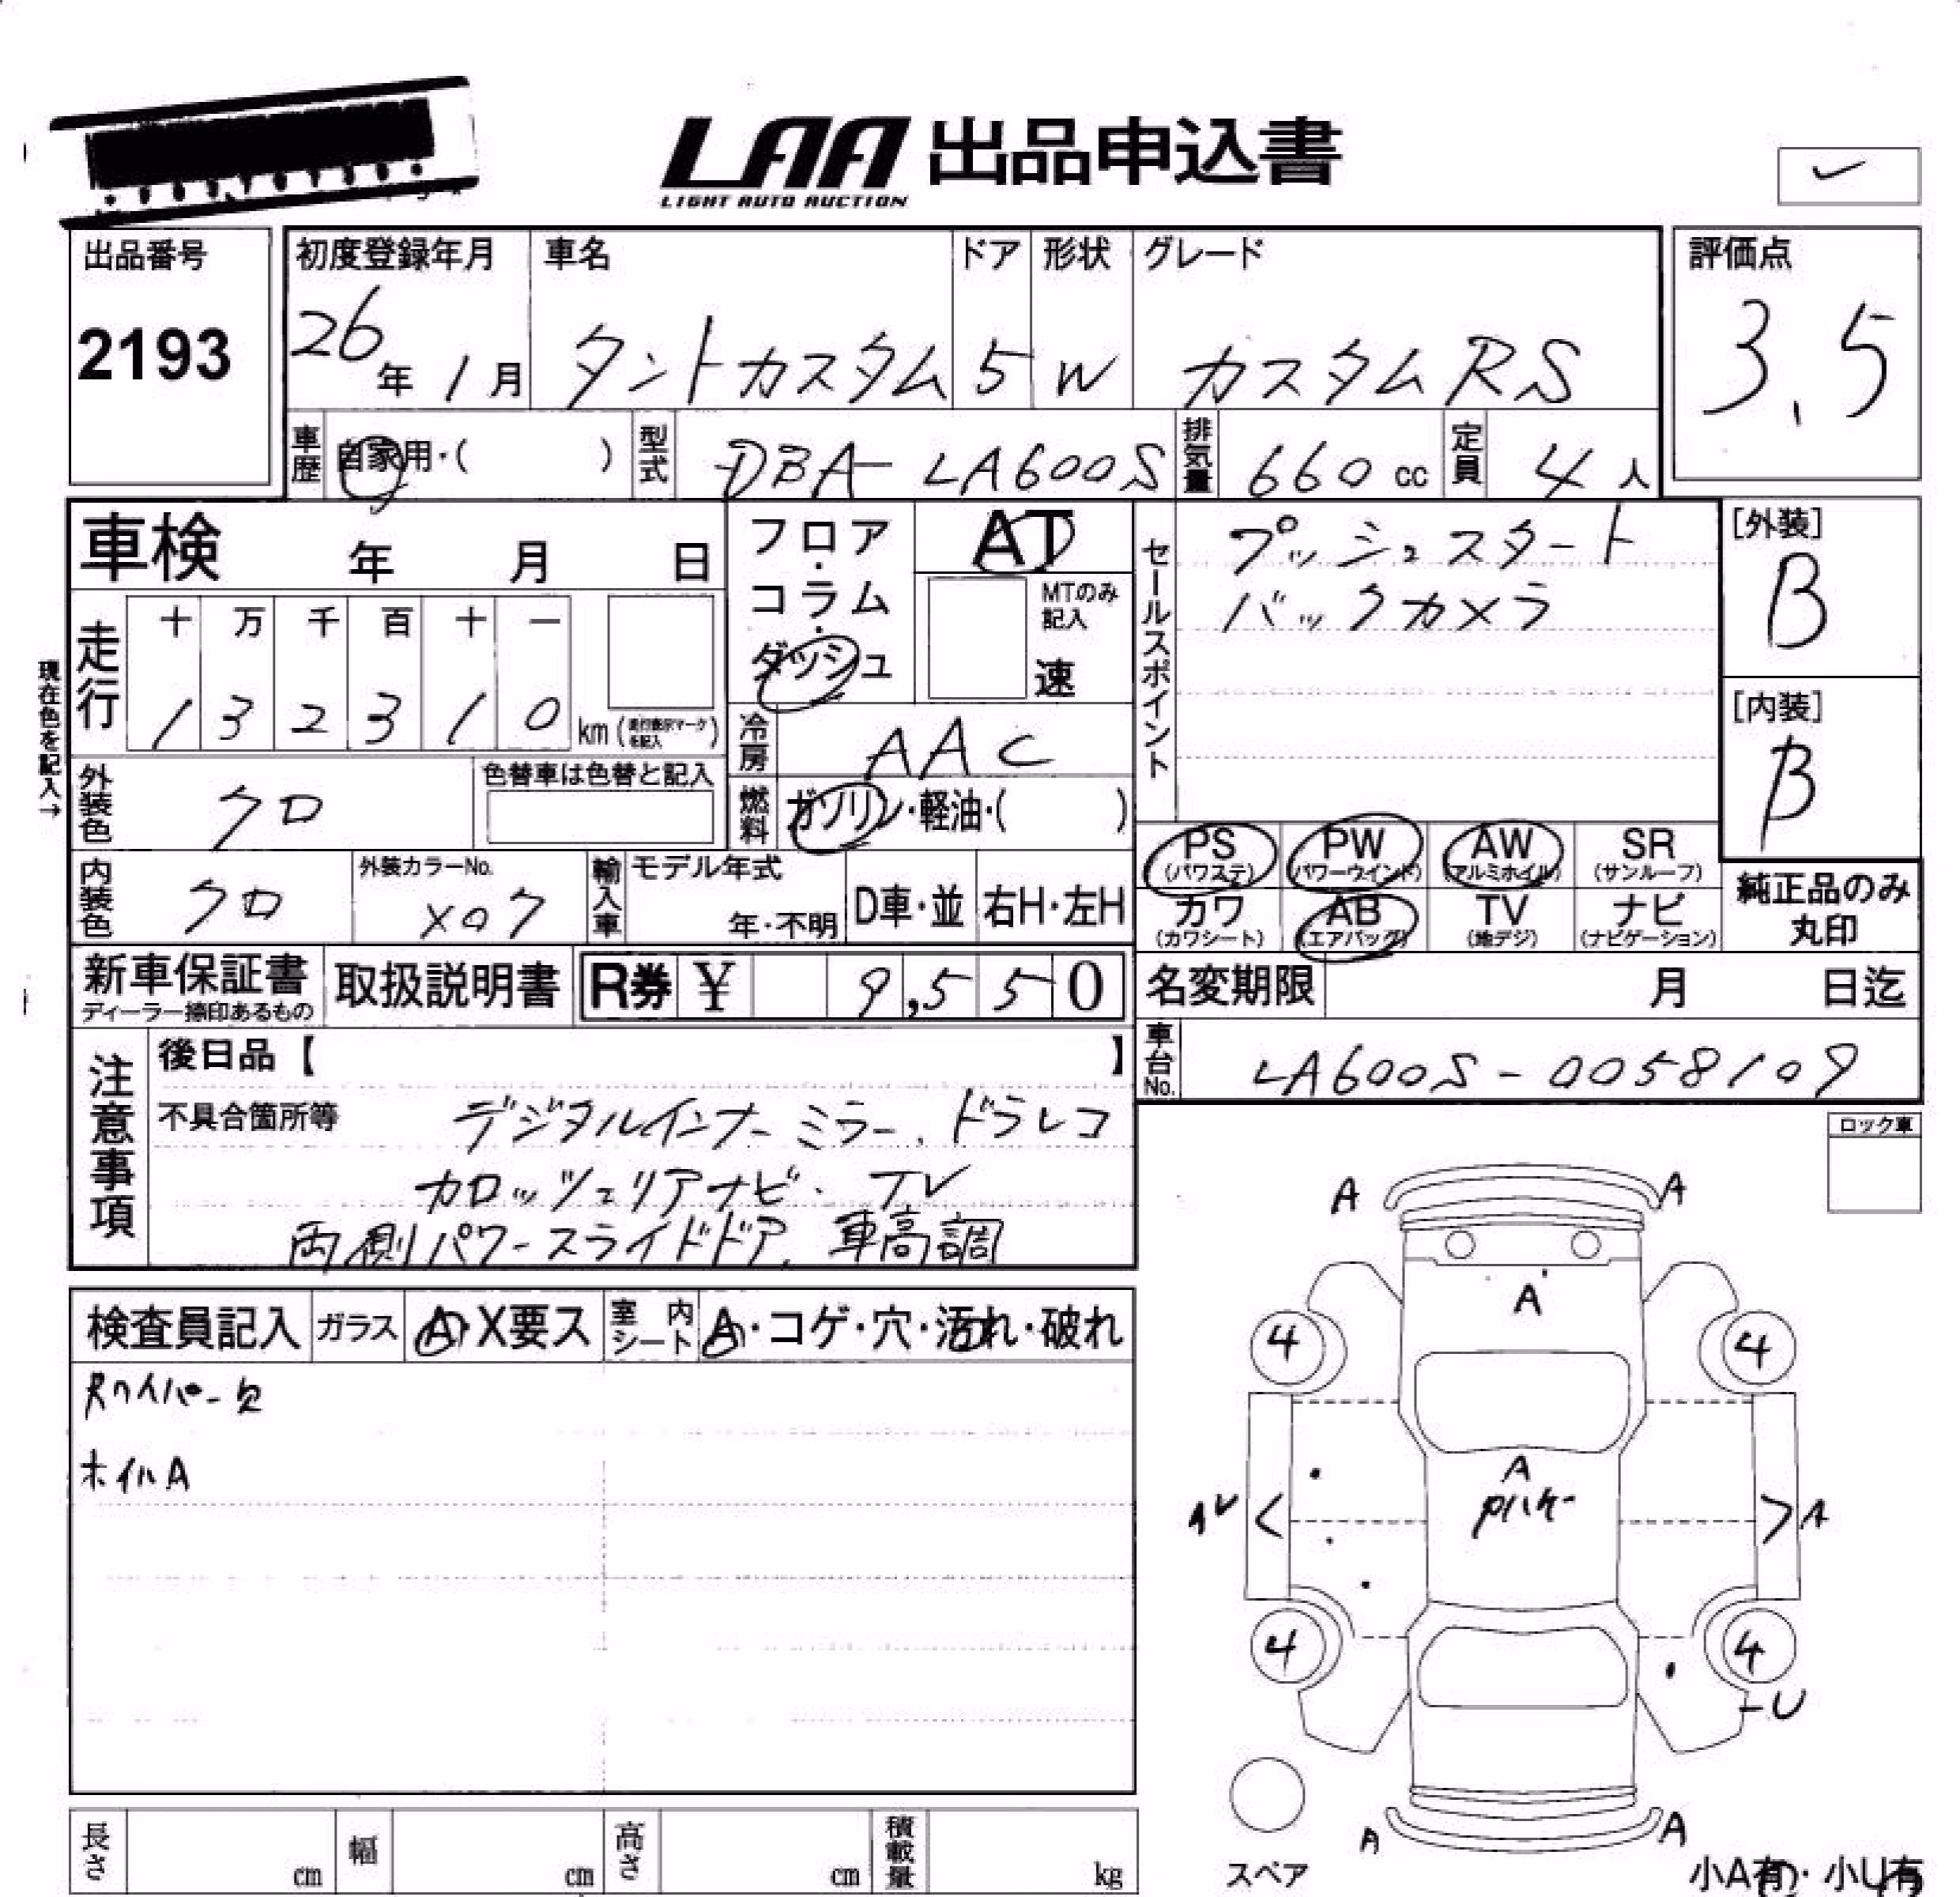 LAA 出品申込書
LIGHT AUTO AUCTION
出品番号
2193
初度登録年月
26年1月
車名
タントカスタム
ドア
5
形状
W
グレード
カスタムRS
評価点
3.5
車歴
自家用・( )
型式
DBA-LA600S
排気量
660cc
定員
4人
車検 年 月 日
フロア・コラム・ダッシュ
AT
MTのみ記入
速
セールスポイント
プッシュスタート
バックカメラ
[外装]
B
[内装]
B
現在色を記入→
走行
十 万 千 百 十 一
1 3 2 3 1 0 km (走行表示マークを記入)
冷房
AAC
外装色
クロ
色替車は色替と記入
燃料
ガソリン・軽油・( )
内装色
クロ
外装カラーNo.
X07
輸入車
モデル年式
年・不明
D車・並
右H・左H
PS (パワステ)
PW (パワーウインド)
AW (アルミホイル)
SR (サンルーフ)
カワ (カワシート)
AB (エアバッグ)
TV (地デジ)
ナビ (ナビゲーション)
純正品のみ丸印
新車保証書
ディーラー捺印あるもの
取扱説明書
R券 ¥ 9,550
名変期限 月 日迄
車台No.
LA600S-0058109
注意事項
後日品【 】
不具合箇所等
デジタルインナーミラー、ドラレコ
カロッツェリアナビ・TV
両側パワースライドドア、車高調
ロック車
検査員記入
ガラス
A・X要ス
室内シート
A・コゲ・穴・汚れ・破れ
ワイパー欠
ホイルA
A A
A
4 4
A
< > A
4 4
U
A A
スペア
小A有・小U有
長さ cm
幅 cm
高さ cm
積載量 kg